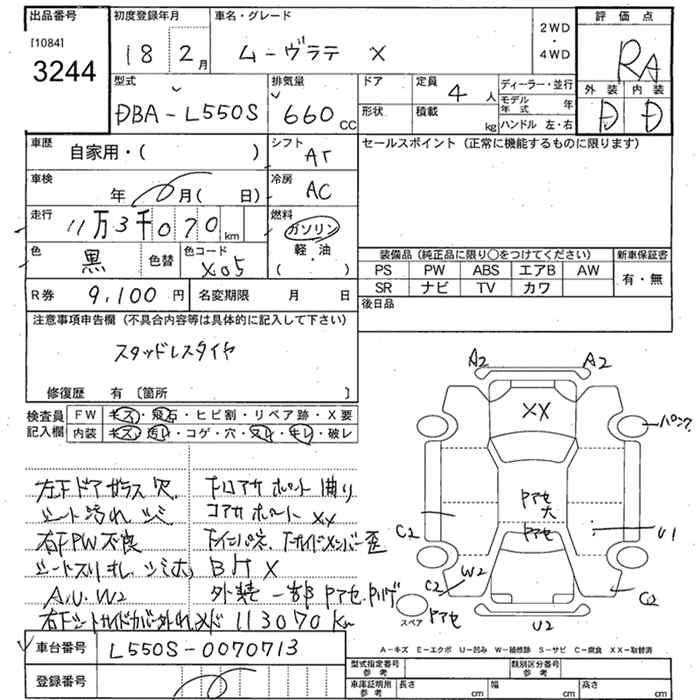 出品番号
[1084]
3244
初度登録年月
18 2月
車名・グレード
ムーヴラテ X
2WD
・
4WD
評価点
RA
型式
DBA-L550S
排気量
660 CC
ドア
形状
定員
4 人
積載
kg
ディーラー・並行
モデル年式 年
ハンドル 左・右
外装 内装
D D
車歴
自家用・( )
シフト
AT
セールスポイント (正常に機能するものに限ります)
車検
年 月( 日)
冷房
AC
走行
11万3千070 km
燃料
ガソリン
軽・油
( )
色
黒
色替
色コード
X05
装備品 (純正品に限り○をつけてください)
新車保証書
PS PW ABS エアB AW
SR ナビ TV カワ
有・無
R券 9,100 円
名変期限 月 日
後日品
注意事項申告欄 (不具合内容等は具体的に記入して下さい)
スタッドレスタイヤ
修復歴 有 〔箇所 〕
検査員記入欄
FW キズ・飛石・ヒビ割・リペア跡・X要
内装 キズ・汚レ・コゲ・穴・スレ・キレ・破レ
左下ドアガラス穴
シート汚れ
右下PW不良
シートスリキレ
A.U.W2
下ロアサポート曲り
コアサポートXX
歪
BHX
外装一部
113070km
A2 A2
XX
パンク
Pアセ大
Pアセ
C2
U1
C2
W2
C2
U2
スペア
Pアセ
A-キズ E-エクボ U-凹み W-補修跡 S-サビ C-腐食 XX-取替済
車台番号
L550S-0070713
登録番号
型式指定番号
参考
類別区分番号
参考
車庫証明用
参考
長さ cm
幅 cm
高さ cm